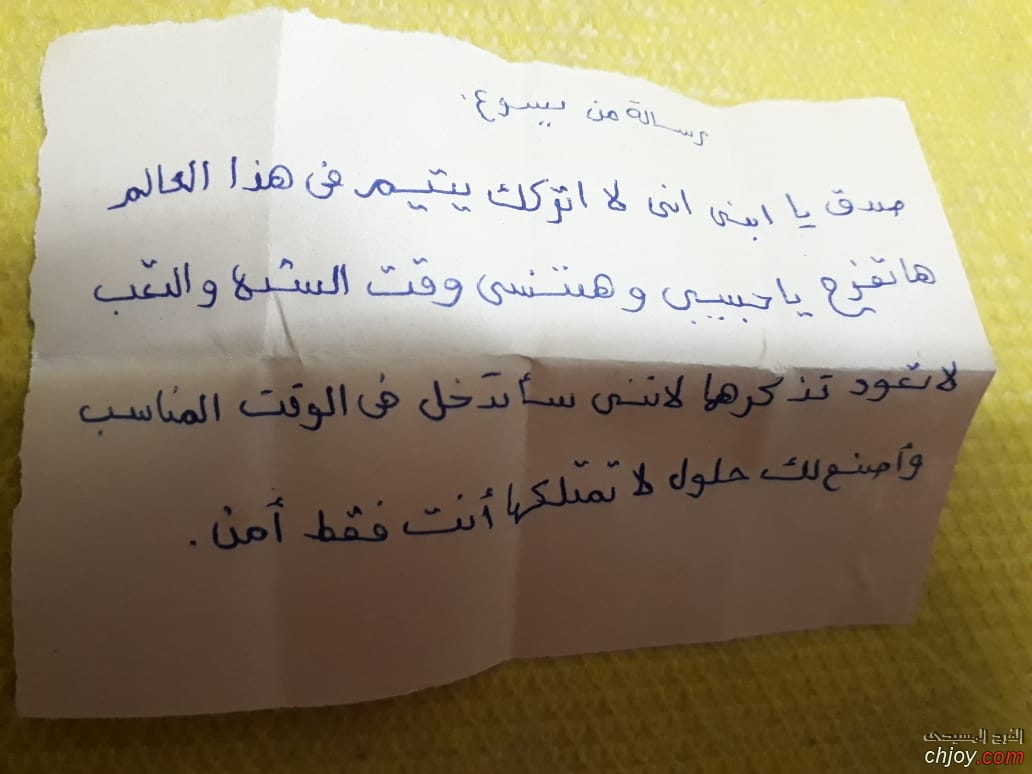 رسالة من يسوع.
صدق يا ابنى انى لا اتركك يتيم فى هذا العالم
هاتفرح يا حبيبي وهتنسى وقت الشده والتعب
لا تعود تذكرها لاننى سأتدخل فى الوقت المناسب
وأصنع لك حلول لا تمتلكها أنت فقط أمن.
الفرح المسيحى
chjoy.com